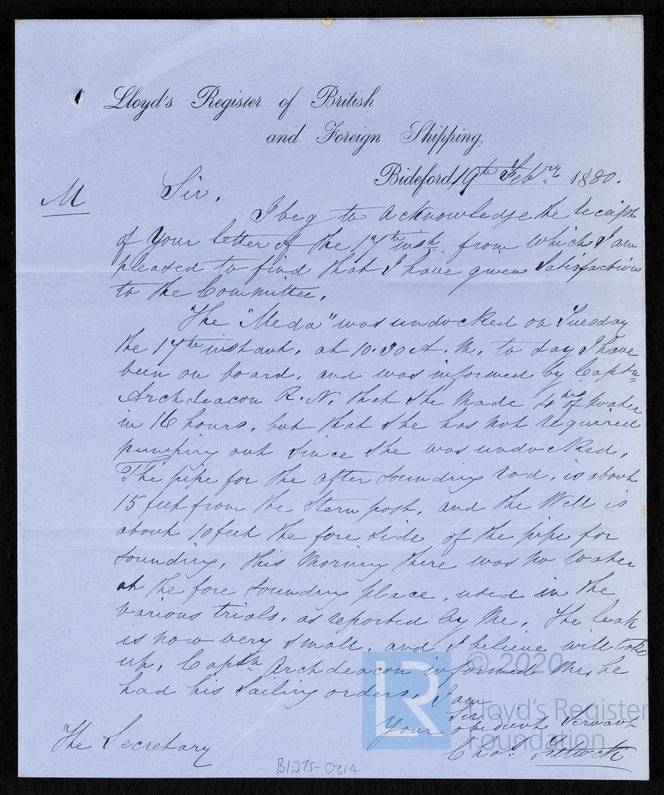 Lloyd's Register of British
and Foreign Shipping,
Bideford, 19th Febry 1880.
M
Sir,
I beg to acknowledge the receipt
of Your letter of the inst. from which I am
pleased to find that I have given Satisfaction
to the Committee.
The "Meda" was undocked on Tuesday
the 17th instant, at 10.30 A.M. to day I have
been on board, and was informed by Captn
Archdeacon R.N. that She made of water
in 16 hours, but that She has not required
pumping out since She was undocked,
The pipe for the after sounding rod, is about
15 feet from the Stern post, and the Well is
about 10 feet the fore side of the pipe for
Sounding, this Morning there was no water
at the fore sounding place, used in the
various trials, as reported by Me, The leak
is now very small, and I believe will take
up, Captn Archdeacon informed Me, he
had his Sailing orders, I am
Sir
Your obedient Servant
Chas.
The Secretary
LR
© 2020
Lloyd's Register
Foundation